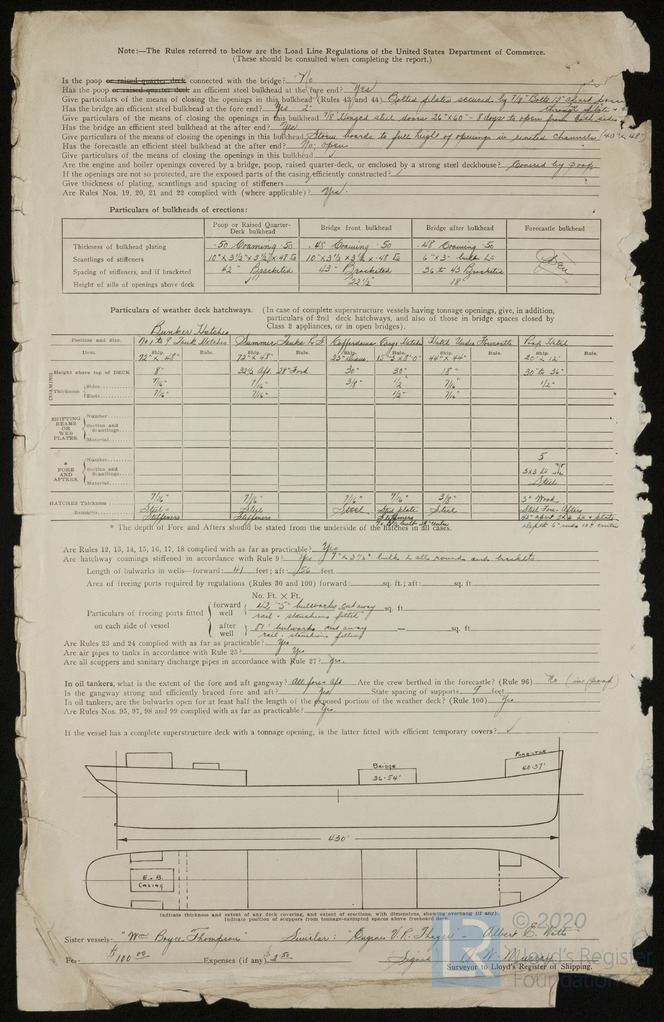 Note:—The Rules referred to below are the Load Line Regulations of the United States Department of Commerce.
(These should be consulted when completing the report.)
Is the poop or raised quarter deck connected with the bridge? No
Has the poop or raised quarter deck an efficient steel bulkhead at the fore end? Yes
Give particulars of the means of closing the openings in this bulkhead (Rules 43 and 44) Bolted plates secured by 7/8" Bolts
Has the bridge an efficient steel bulkhead at the fore end? Yes
Give particulars of the means of closing the openings in this bulkhead Hinged steel doors 26"x60" - 8 dogs to open from both sides
Has the bridge an efficient steel bulkhead at the after end? Yes
Give particulars of the means of closing the openings in this bulkhead Storm boards to full height of openings in riveted channels
Has the forecastle an efficient steel bulkhead at the after end? No; open
Give particulars of the means of closing the openings in this bulkhead
Are the engine and boiler openings covered by a bridge, poop, raised quarter-deck, or enclosed by a strong steel deckhouse? Covered by poop
If the openings are not so protected, are the exposed parts of the casing efficiently constructed?
Give thickness of plating, scantlings and spacing of stiffeners
Are Rules Nos. 19, 20, 21 and 22 complied with (where applicable)? Yes
Particulars of bulkheads of erections:
Poop or Raised Quarter-Deck bulkhead Bridge front bulkhead Bridge after bulkhead Forecastle bulkhead
Thickness of bulkhead plating .50 Coaming .50 .48 Coaming .50 .48 Coaming .50
Scantlings of stiffeners 10"x3½"x3½"x.48 10"x3½"x3½"x.48 6"x3"
Spacing of stiffeners, and if bracketed 42" Bracketed 43" Bracketed 36 to 43 Bracketed
Height of sills of openings above deck 22½" 18"
Particulars of weather deck hatchways. (In case of complete superstructure vessels having tonnage openings, give, in addition,
particulars of 2nd deck hatchways, and also of those in bridge spaces closed by
Class 2 appliances, or in open bridges).
Bunker Hatches
Position and Size. No. 1 to 9 Tank Hatches Summer Tanks Cofferdams Cargo Hatch Hatch Under Forecastle Poop Hatch
Item. Ship. Rule. Ship. Rule. Ship. Rule. Ship. Rule. Ship. Rule.
72" x 48" 72" x 48" 44" x 44"
COAMING Height above top of DECK 8" 30" 30" 18" 30" to 36"
Thickness Sides 7/16" 7/16" 3/8" 1/2 7/16" 1/2"
Ends 7/16" 7/16" 1/2" 7/16"
SHIFTING BEAMS OR WEB PLATES
Number
Section and Scantlings
Material
* FORE AND AFTERS.
Number 5
Section and Scantlings
Material Steel
HATCHES Thickness 7/16" 7/16" 7/16" 7/16" 3/8" 3" Wood
Remarks Steel Stiffeners Steel Stiffeners Steel Steel Steel Fore-Afters
* The depth of Fore and Afters should be stated from the underside of the hatches in all cases.
Are Rules 12, 13, 14, 15, 16, 17, 18 complied with as far as practicable? Yes
Are hatchway comings stiffened in accordance with Rule 9? Yes
Length of bulwarks in wells—forward: 41 feet; aft: 56 feet
Area of freeing ports required by regulations (Rules 30 and 100) forward: sq. ft.; aft: sq. ft
No. Ft. X Ft.
Particulars of freeing ports fitted
on each side of vessel
forward well bulwarks cut away sq. ft
rail & stanchions fitted
after well bulwarks cut away sq. ft.
rail & stanchions fitted
Are Rules 23 and 24 complied with as far as practicable? Yes
Are air pipes to tanks in accordance with Rule 25? Yes
Are all scuppers and sanitary discharge pipes in accordance with Rule 27? Yes.
In oil tankers, what is the extent of the fore and aft gangway? All fore & aft Are the crew berthed in the forecastle? (Rule 96) No (in Poop)
Is the gangway strong and efficiently braced fore and aft? Yes State spacing of supports 9 feet.
In oil tankers, are the bulwarks open for at least half the length of the exposed portion of the weather deck? (Rule 100) Yes
Are Rules Nos. 95, 97, 98 and 99 complied with as far as practicable? Yes
If the vessel has a complete superstructure deck with a tonnage opening, is the latter fitted with efficient temporary covers?
Bridge
36-54'
Forecstle
40.37'
430'
E. & B.
Casing
Indicate thickness and extent of any deck covering, and extent of erections, with dimensions, showing overhang (if any).
Indicate position of scuppers from tonnage-exempted spaces above freeboard deck.
Sister vessels: "Wm Boyce Thompson" Similar: "Eugene V. R. Thayer" - Albert E. Watts"
Fee $100.00 Expenses (if any)
Surveyor to Lloyd's Register of Shipping.
© 2020
Lloyd's Register
Foundation